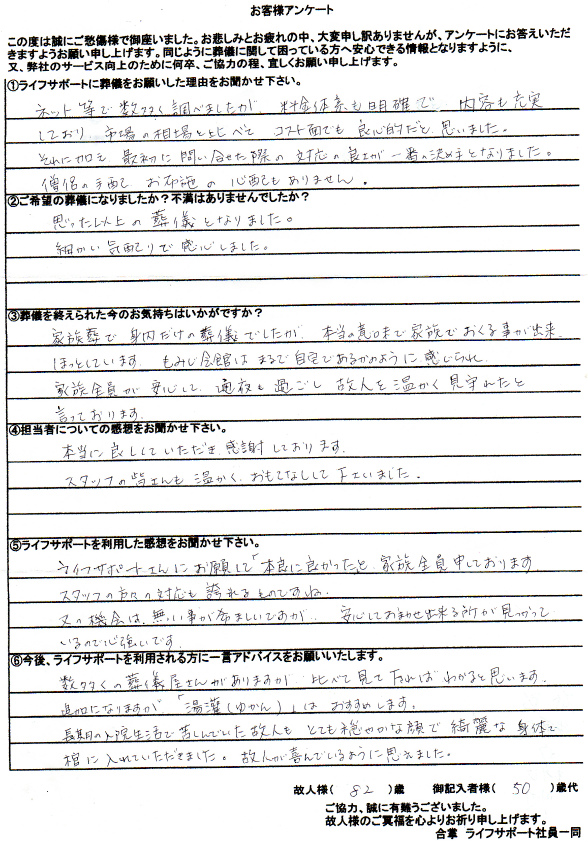 お客様アンケート
この度は誠にご愁傷様で御座いました。お悲しみとお疲れの中、大変申し訳ありませんが、アンケートにお答えいただ
きますようお願い申し上げます。同じように葬儀に関して困っている方へ安心できる情報となりますように、
又、弊社のサービス向上のために何卒、ご協力の程、宜しくお願い申し上げます。
①ライフサポートに葬儀をお願いした理由をお聞かせ下さい。
ネット等で数多く調べましたが、料金体系も明確で、内容も充実
しており、市場の相場と比べて コスト面でも良心的だと思いました。
それに加え 最初に問い合せた際の対応の良さが一番の決め手となりました。
僧侶の手配で お布施の心配もありません。
②ご希望の葬儀になりましたか？不満はありませんでしたか？
思った以上の葬儀となりました。
細かい気配りで感心しました。
③葬儀を終えられた今のお気持ちはいかがですか？
家族葬で身内だけの葬儀でしたが、本当の意味で家族でおくる事が出来
ほっとしています。もみじ会館はまるで自宅であるかのように感じられ
家族全員が安心して、通夜も過ごし故人を温かく見守れたと
言っております。
④担当者についての感想をお聞かせ下さい。
本当に良くしていただき、感謝しております。
スタッフの皆さんも温かく、おもてなしして下さいました。
⑤ライフサポートを利用した感想をお聞かせ下さい。
ライフサポートさんにお願して「本良に良かったと、家族全員申しております
スタッフの方々の対応も誇れるものですね。
又の機会は、無い事が望ましいですが、安心しておまかせ出来る所が見つかって
いるので心強いです。
⑥今後、ライフサポートを利用される方に一言アドバイスをお願いいたします。
数多くの葬儀屋さんがありますが、比べて見て下ればわかると思います。
追加になりますが「湯灌（ゆかん）」は おすすめします。
長期の入院生活で苦しんでいた故人も とても穏やかな顔で綺麗な身体で
棺に入れていただきました。故人が喜んでいるように思えました。
故人様（ 82 ）歳 御記入者様（ 50 ）歳代
ご協力、誠に有難うございました。
故人様のご冥福を心よりお祈り申し上げます。
合掌 ライフサポート社員一同